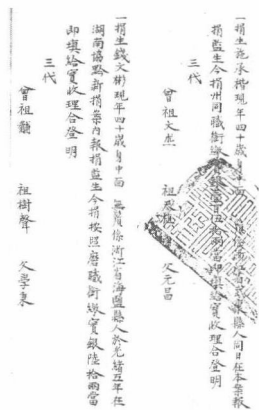 一捐生施承楷現年四十歲身中面 縣人同日在本案報
捐監生今捐州同職銜 當即填給實收理合登明
三代
曾祖文 祖 父元昌
一捐生錢文彬現年四十歲身中面 無鬚係浙江省海鹽縣人於光緒五年在
湖南協黔新捐案內報捐監生今捐按照磨職銜繳實銀陸拾兩當
即填給實收理合登明
三代
曾祖 祖樹聲 父學東